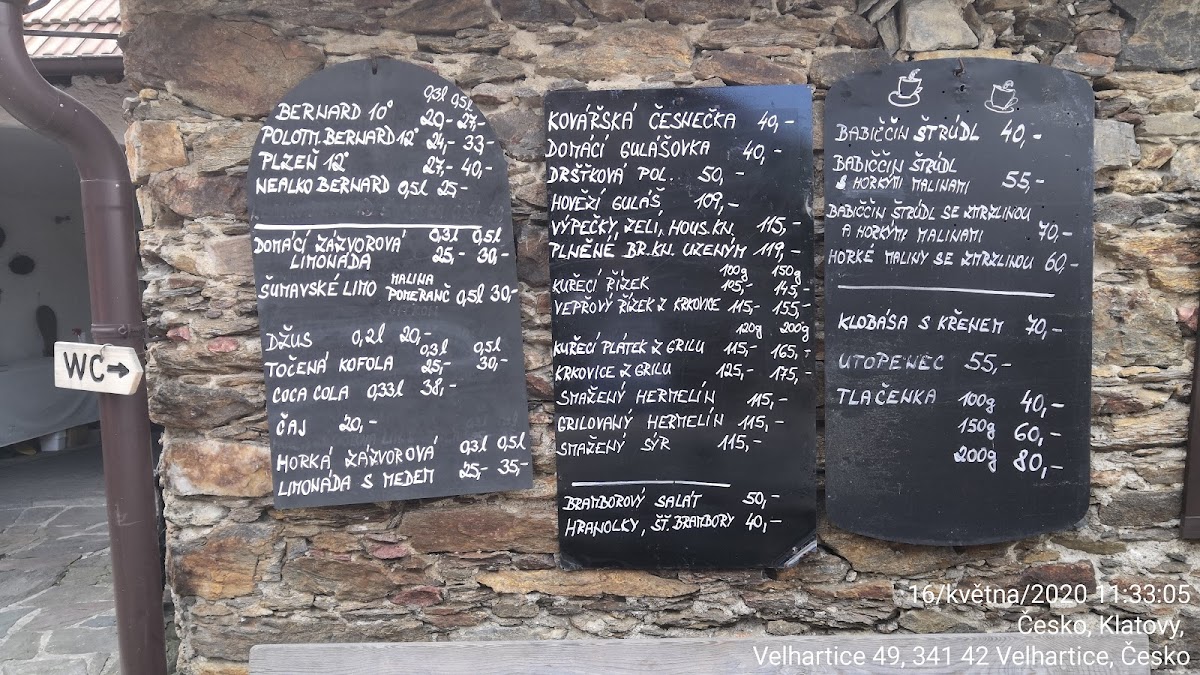 0,3l 0,5l
BERNARD 10° 20,- 27,-
POLOTM. BERNARD 12° 24,- 33,-
PLZEŇ 12° 27,- 40,-
NEALKO BERNARD 0,5l 25,-
0,3l 0,5l
DOMÁCÍ ZÁZVOROVÁ 25,- 30,-
LIMONÁDA
ŠUMAVSKÉ LIMO MALINA
POMERANČ 0,5l 30,-
DŽUS 0,2l 20,-
0,3l 0,5l
TOČENÁ KOFOLA 25,- 30,-
COCA COLA 0,33l 38,-
ČAJ 20,-
HORKÁ ZÁZVOROVÁ 0,3l 0,5l
LIMONÁDA S MEDEM 25,- 35,-
WC→
KOVÁŘSKÁ ČESNEČKA 40,-
DOMÁCÍ GULÁŠOVKA 40,-
DRŠŤKOVÁ POL. 50,-
HOVĚZÍ GULÁŠ 109,-
VÝPEČKY, ZELÍ, HOUS.KN. 115,-
PLNĚNÉ BR.KN. UZENÝM 119,-
100g 150g
KUŘECÍ ŘÍZEK 105,- 145,-
VEPŘOVÝ ŘÍZEK Z KRKOVICE 115,- 155,-
120g 200g
KUŘECÍ PLÁTEK Z GRILU 115,- 165,-
KRKOVICE Z GRILU 125,- 175,-
SMAŽENÝ HERMELÍN 115,-
GRILOVANÝ HERMELÍN 115,-
SMAŽENÝ SÝR 115,-
BRAMBOROVÝ SALÁT 50,-
HRANOLKY, ŠŤ. BRAMBORY 40,-
BABIČČIN ŠTRÚDL 40,-
BABIČČIN ŠTRÚDL
S HORKÝMI MALINAMI 55,-
BABIČČIN ŠTRÚDL SE ZMRZLINOU
A HORKÝMI MALINAMI 70,-
HORKÉ MALINY SE ZMRZLINOU 60,-
KLOBÁSA S KŘENEM 70,-
UTOPENEC 55,-
TLAČENKA 100g 40,-
150g 60,-
200g 80,-
16/května/2020 11:33:05
Česko, Klatovy,
Velhartice 49, 341 42 Velhartice, Česko